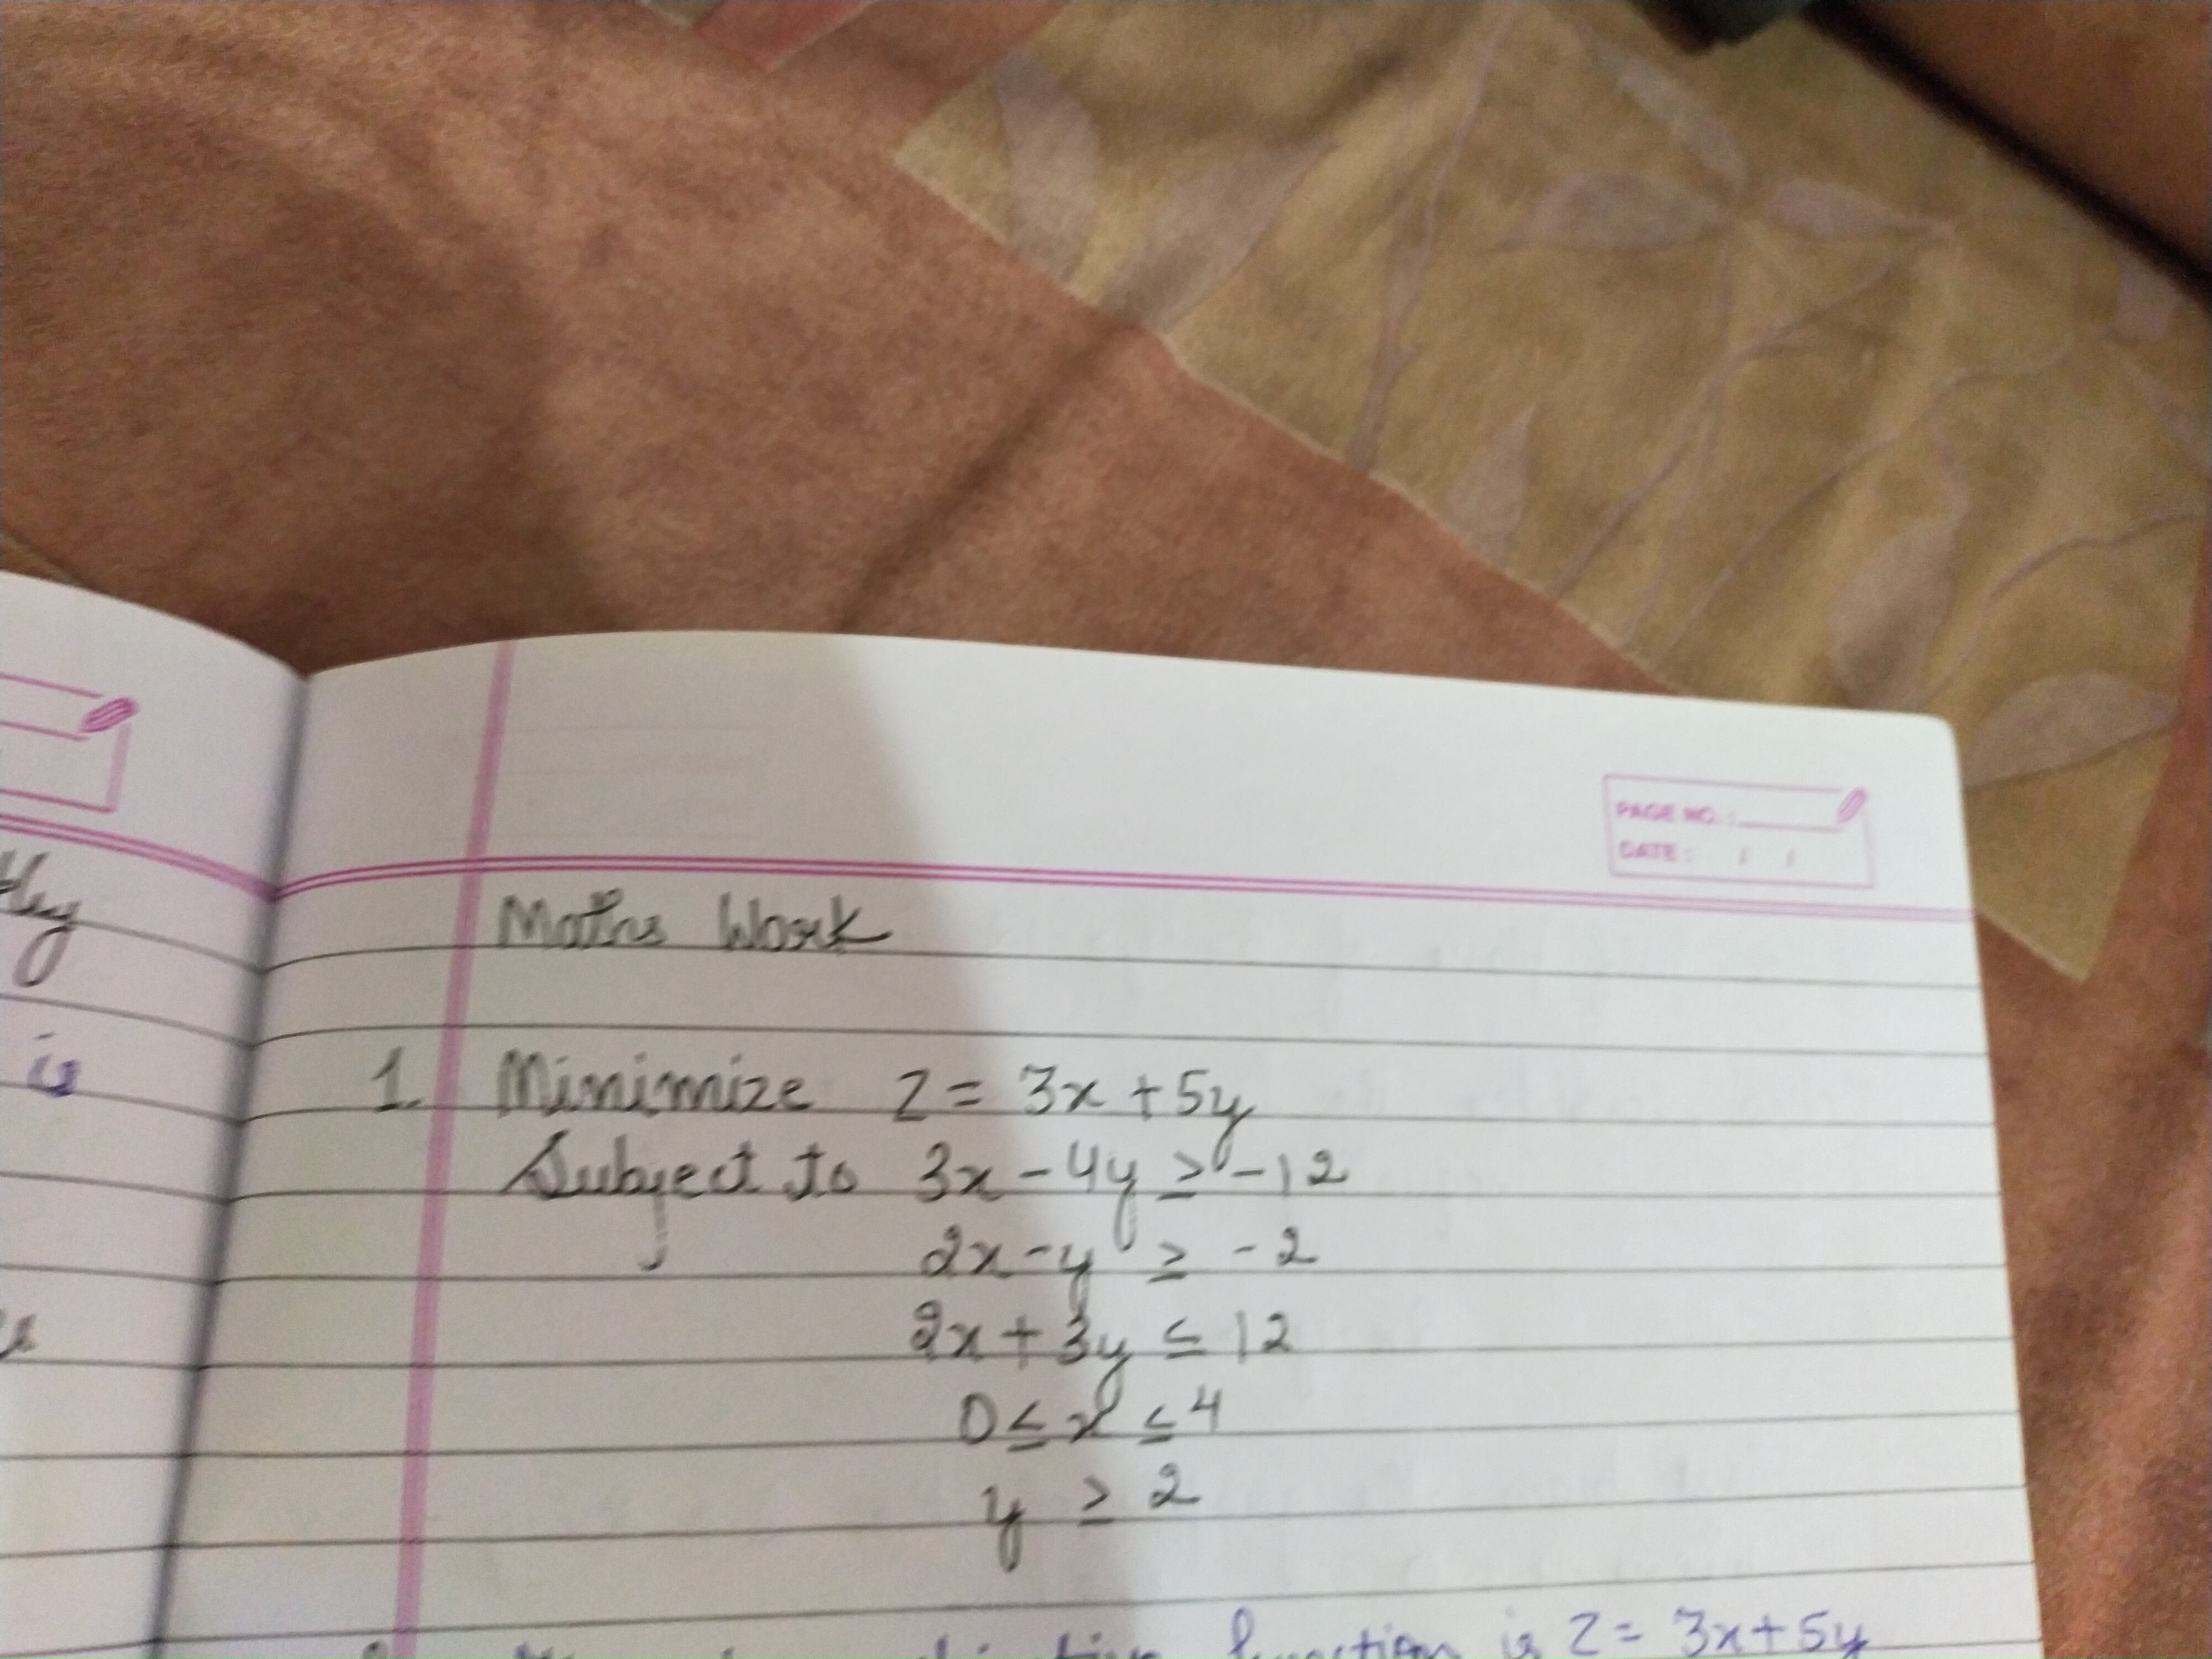 PAGE NO. :
DATE : / /
Maths Work
is
1. Minimize Z = 3x + 5y
Subject to 3x - 4y ≥ -12
2x - y ≥ -2
2x + 3y ≤ 12
0 ≤ x ≤ 4
y ≥ 2
function is Z = 3x + 5y